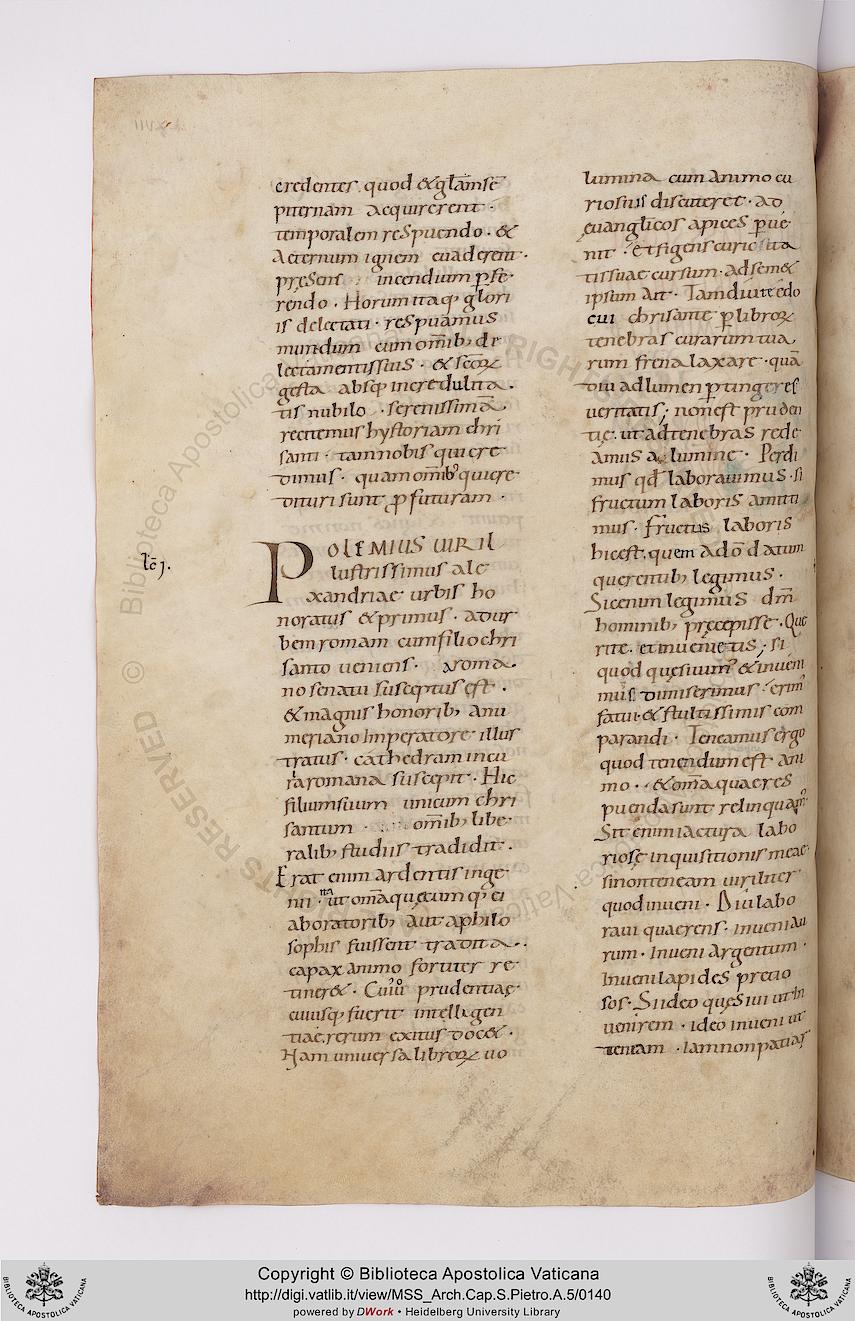 credentes. quod & glãm sẽ
piternam acquirerent.
temporalem respuendo. &
Aeternum ignem euaderent.
presens incendium p̱fe
rendo. Horum itaq; glori
is delectati. respuamus
mundum cum om̃ib; de
lectamentis suis. & sc̃oꝝ
gesta absq; incredulita
tis nubilo. serenissima
recitemus hystoriam chri
santi. tam nobis qui cre
dimus. quam om̃ib; qui cre
dituri sunt ꝓfuturam.
lc̃ j.
POLEMIUS UIR IL
lustrissimus ale
xandriae urbis ho
noratus & primus. ad ur
bem romam cum filio chri
santo ueniens. a roma
no senatu susceptus est.
& magnis honorib; a nu
meriano Imperatore illus
tratus. cathedram in cu
ria romana suscepit. Hic
filium suum unicum chri
santum om̃ib; libe
ralib; studiis tradidit.
Erat enim ardentis inge
nii. ita ut om̃a quęcumq; ei
a boratorib; aut a philo
sophis fuissent tradita.
capax animo fortiter re
tiner&. Cuius prudentiae
cuiusq; fuerit intellegen
tiae. rerum exitus doc&.
Nam uniuersa libroꝝ uo
lumina cum animo cu
riosius discuteret. ad
euangłicos apices p̱ue
nit. Et figens curiosita
tis suae cursum. ad sem&
ipsum ait. Tamdiu te edo
cui chrisante p̱ libroꝝ
tenebras curarum tua
rum frena laxare. quã
diu ad lumen p̱tingeres
ueritatis; non est pruden
tię. ut ad tenebras rede
amus a lumine. Perdi
mus qđ laborauimus. si
fructum laboris amitti
mus. fructus laboris
hic est. quem a dõ datum
querentib; legimus.
Sic enim legimus dm̃
hominib; precepisse. Que
rite. et inuenietis; si
quod quesiuim' & inueni
mus. dimiserimus. erim'
fatui. & stultissimis com
parandi. Teneamus ergo
quod tenendum est ani
mo. & om̃a quae res
puenda sunt relinquam'
Sit enim iactura labo
riose inquisitionis meae
si non teneam uiriliter
quod inueni. Diu labo
raui quaerens. inueni au
rum. Inueni argentum.
Inueni lapides pretio
sos. Si ideo quesiui ut in
uenirem. ideo inueni ut
teneam. Iam non patias
Copyright © Biblioteca Apostolica Vaticana
http://digi.vatlib.it/view/MSS_Arch.Cap.S.Pietro.A.5/0140
powered by DWork • Heidelberg University Library